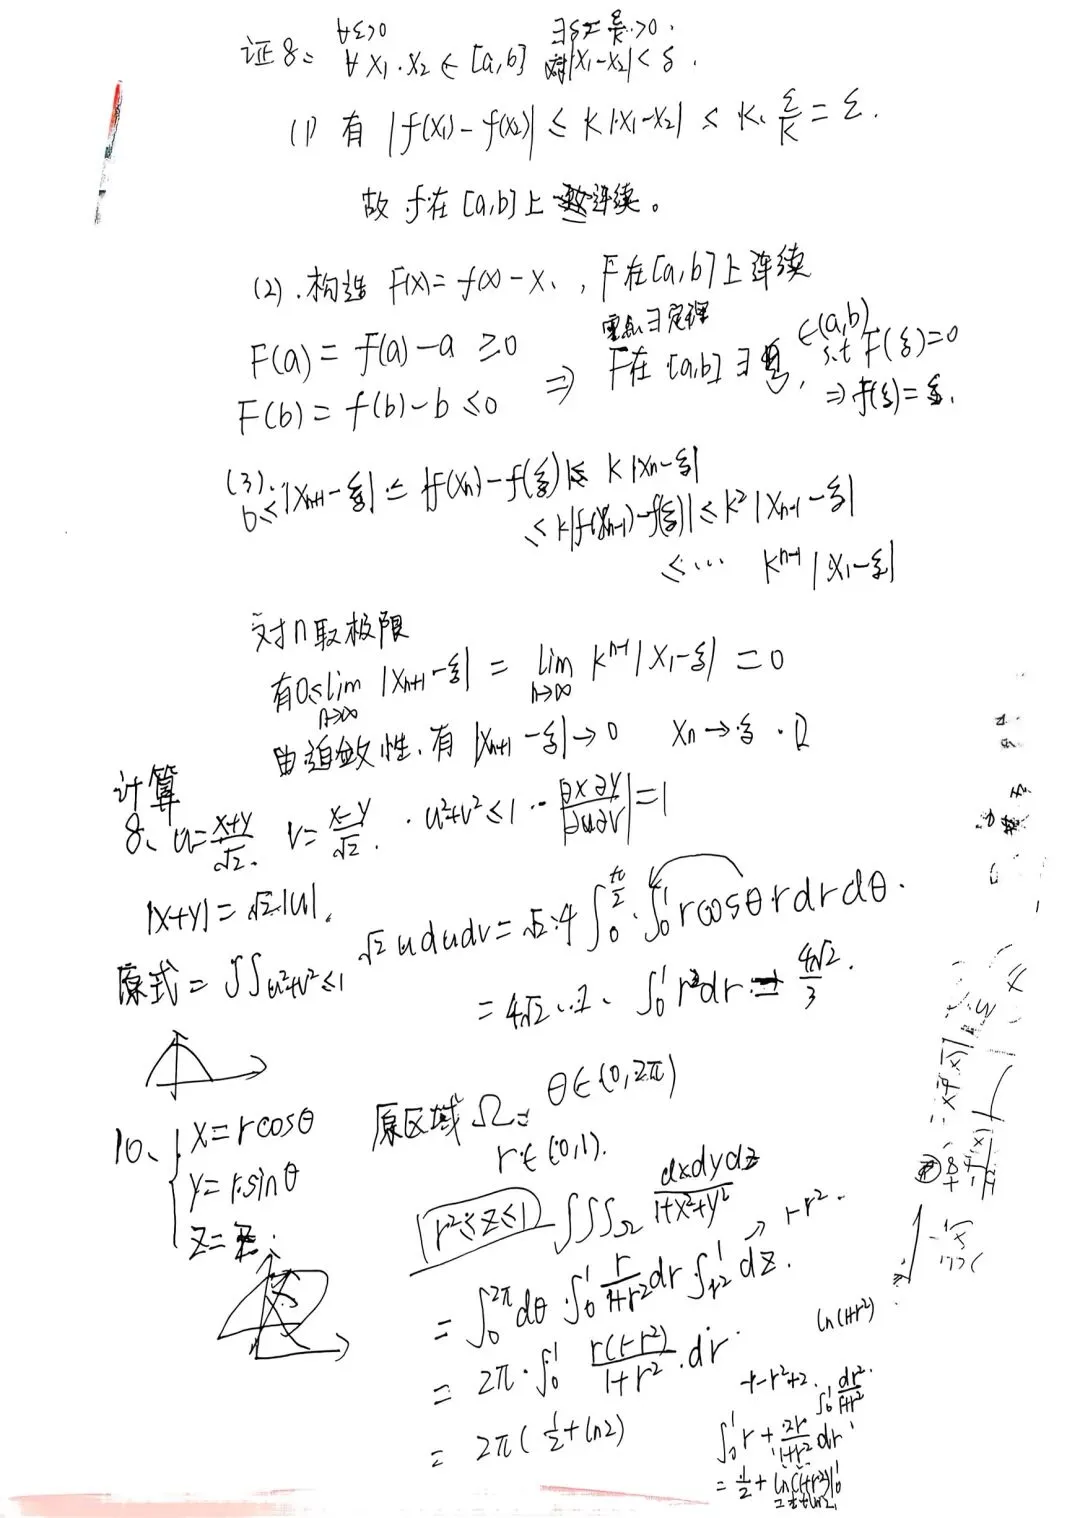 证8: ∀ε>0 ∃δ= ε/k >0.
∀x₁.x₂∈[a,b] 对|x₁-x₂|<δ.
(1) 有 |f(x₁)-f(x₂)| ≤ k|x₁-x₂| ≤ k· ε/k = ε.
故 f在[a,b]上一致连续。
(2). 构造 F(x)=f(x)-x, F在[a,b]上连续
零点∃定理
F(a)=f(a)-a ≥0
F(b)=f(b)-b ≤0 ⇒ F在[a,b]∃ξ, ∈(a,b) s.t F(ξ)=0
⇒ f(ξ)=ξ.
(3). 0≤|xₙ₊₁-ξ| ≤ |f(xₙ)-f(ξ)| ≤ k|xₙ-ξ|
≤k|f(xₙ₋₁)-f(ξ)| ≤ k²|xₙ₋₁-ξ|
≤… kⁿ⁻¹|x₁-ξ|
对n取极限
有0≤lim n→∞ |xₙ₊₁-ξ| = lim n→∞ kⁿ⁻¹|x₁-ξ| =0
由迫敛性,有 |xₙ₊₁-ξ|→0 xₙ→ξ.
计算
8、u= (x+y)/√2, v= (x-y)/√2. u²+v²≤1 |∂x∂y/∂u∂v|=1
|x+y|=√2·|u|,
原式= ∬u²+v²≤1 √2 u du dv = √2·4 ∫₀^(π/2) ·∫₀¹ r cosθ·r dr dθ.
=4√2·1· ∫₀¹ r²dr = 4√2/3.
10、 { x=r cosθ
y=r·sinθ
z=z.
原区域Ω: θ∈(0,2π)
r∈(0,1).
r²≤z≤1 ∭Ω dxdydz/(1+x²+y²)
= ∫₀^(2π) dθ·∫₀¹ r/(1+r²) dr ∫r²^1 dz. → 1-r².
= 2π·∫₀¹ r(1-r²)/(1+r²) ·dr
= 2π( 1/2 + ln2)
ln(1+r²)
-1-r²+2. ∫₀¹ dr²/(1+r²)
∫₀¹ r + 2r/(1+r²) dr
= 1/2 + ln(1+r²)|₀¹